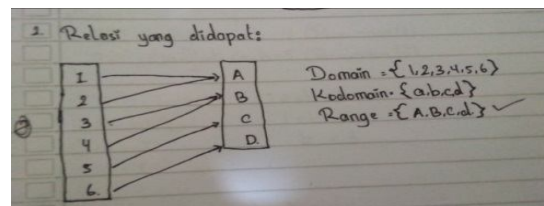 2. Relasi yang didapat:
1
2
3
4
5
6.
A
B
C
D.
Domain = {1,2,3,4,5,6}
Kodomain = {a.b.c.d}
Range = {A.B.C.d.}